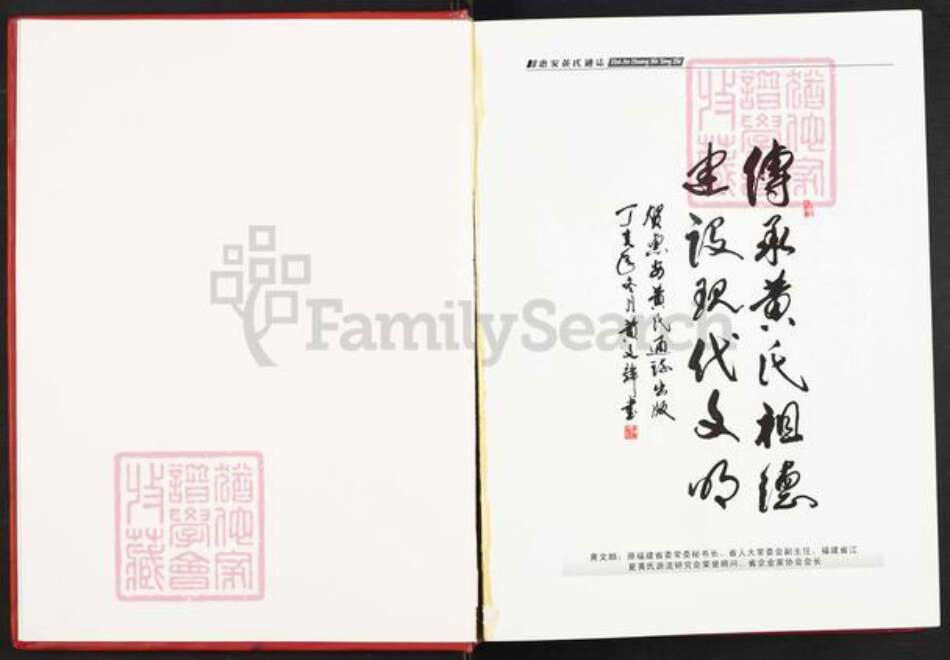 惠安黄氏通誌 Hui An Huang Shi Tong Zhi
傳承黄氏祖德
建設現代文明
賀惠安黄氏通誌出版
丁亥年冬月黄文麟書
猶他家
譜學會
收藏
黄文麟：原福建省委常委秘书长、省人大常委会副主任、福建省江
夏黄氏源流研究会荣誉顾问、省企业家协会会长
猶他家
譜學會
收藏
FamilySearch